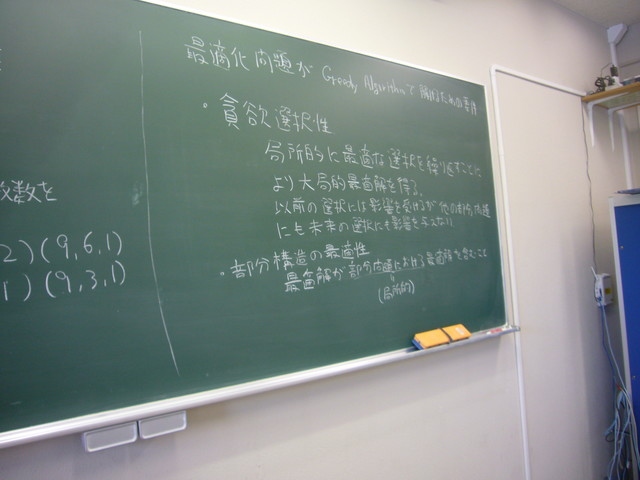 数を
2) (9,6,1)
1) (9,3,1)
最適化問題が Greedy Algorithmで 解けるための要件
・貪欲選択性
局所的に最適な選択を繰り返すことに
より大局的最適解を得る。
以前の選択には影響を受けるが他の部分問題
にも未来の選択にも影響を与えない
・部分構造の最適性
最適解が部分問題における最適解を含むこと
(局所的)